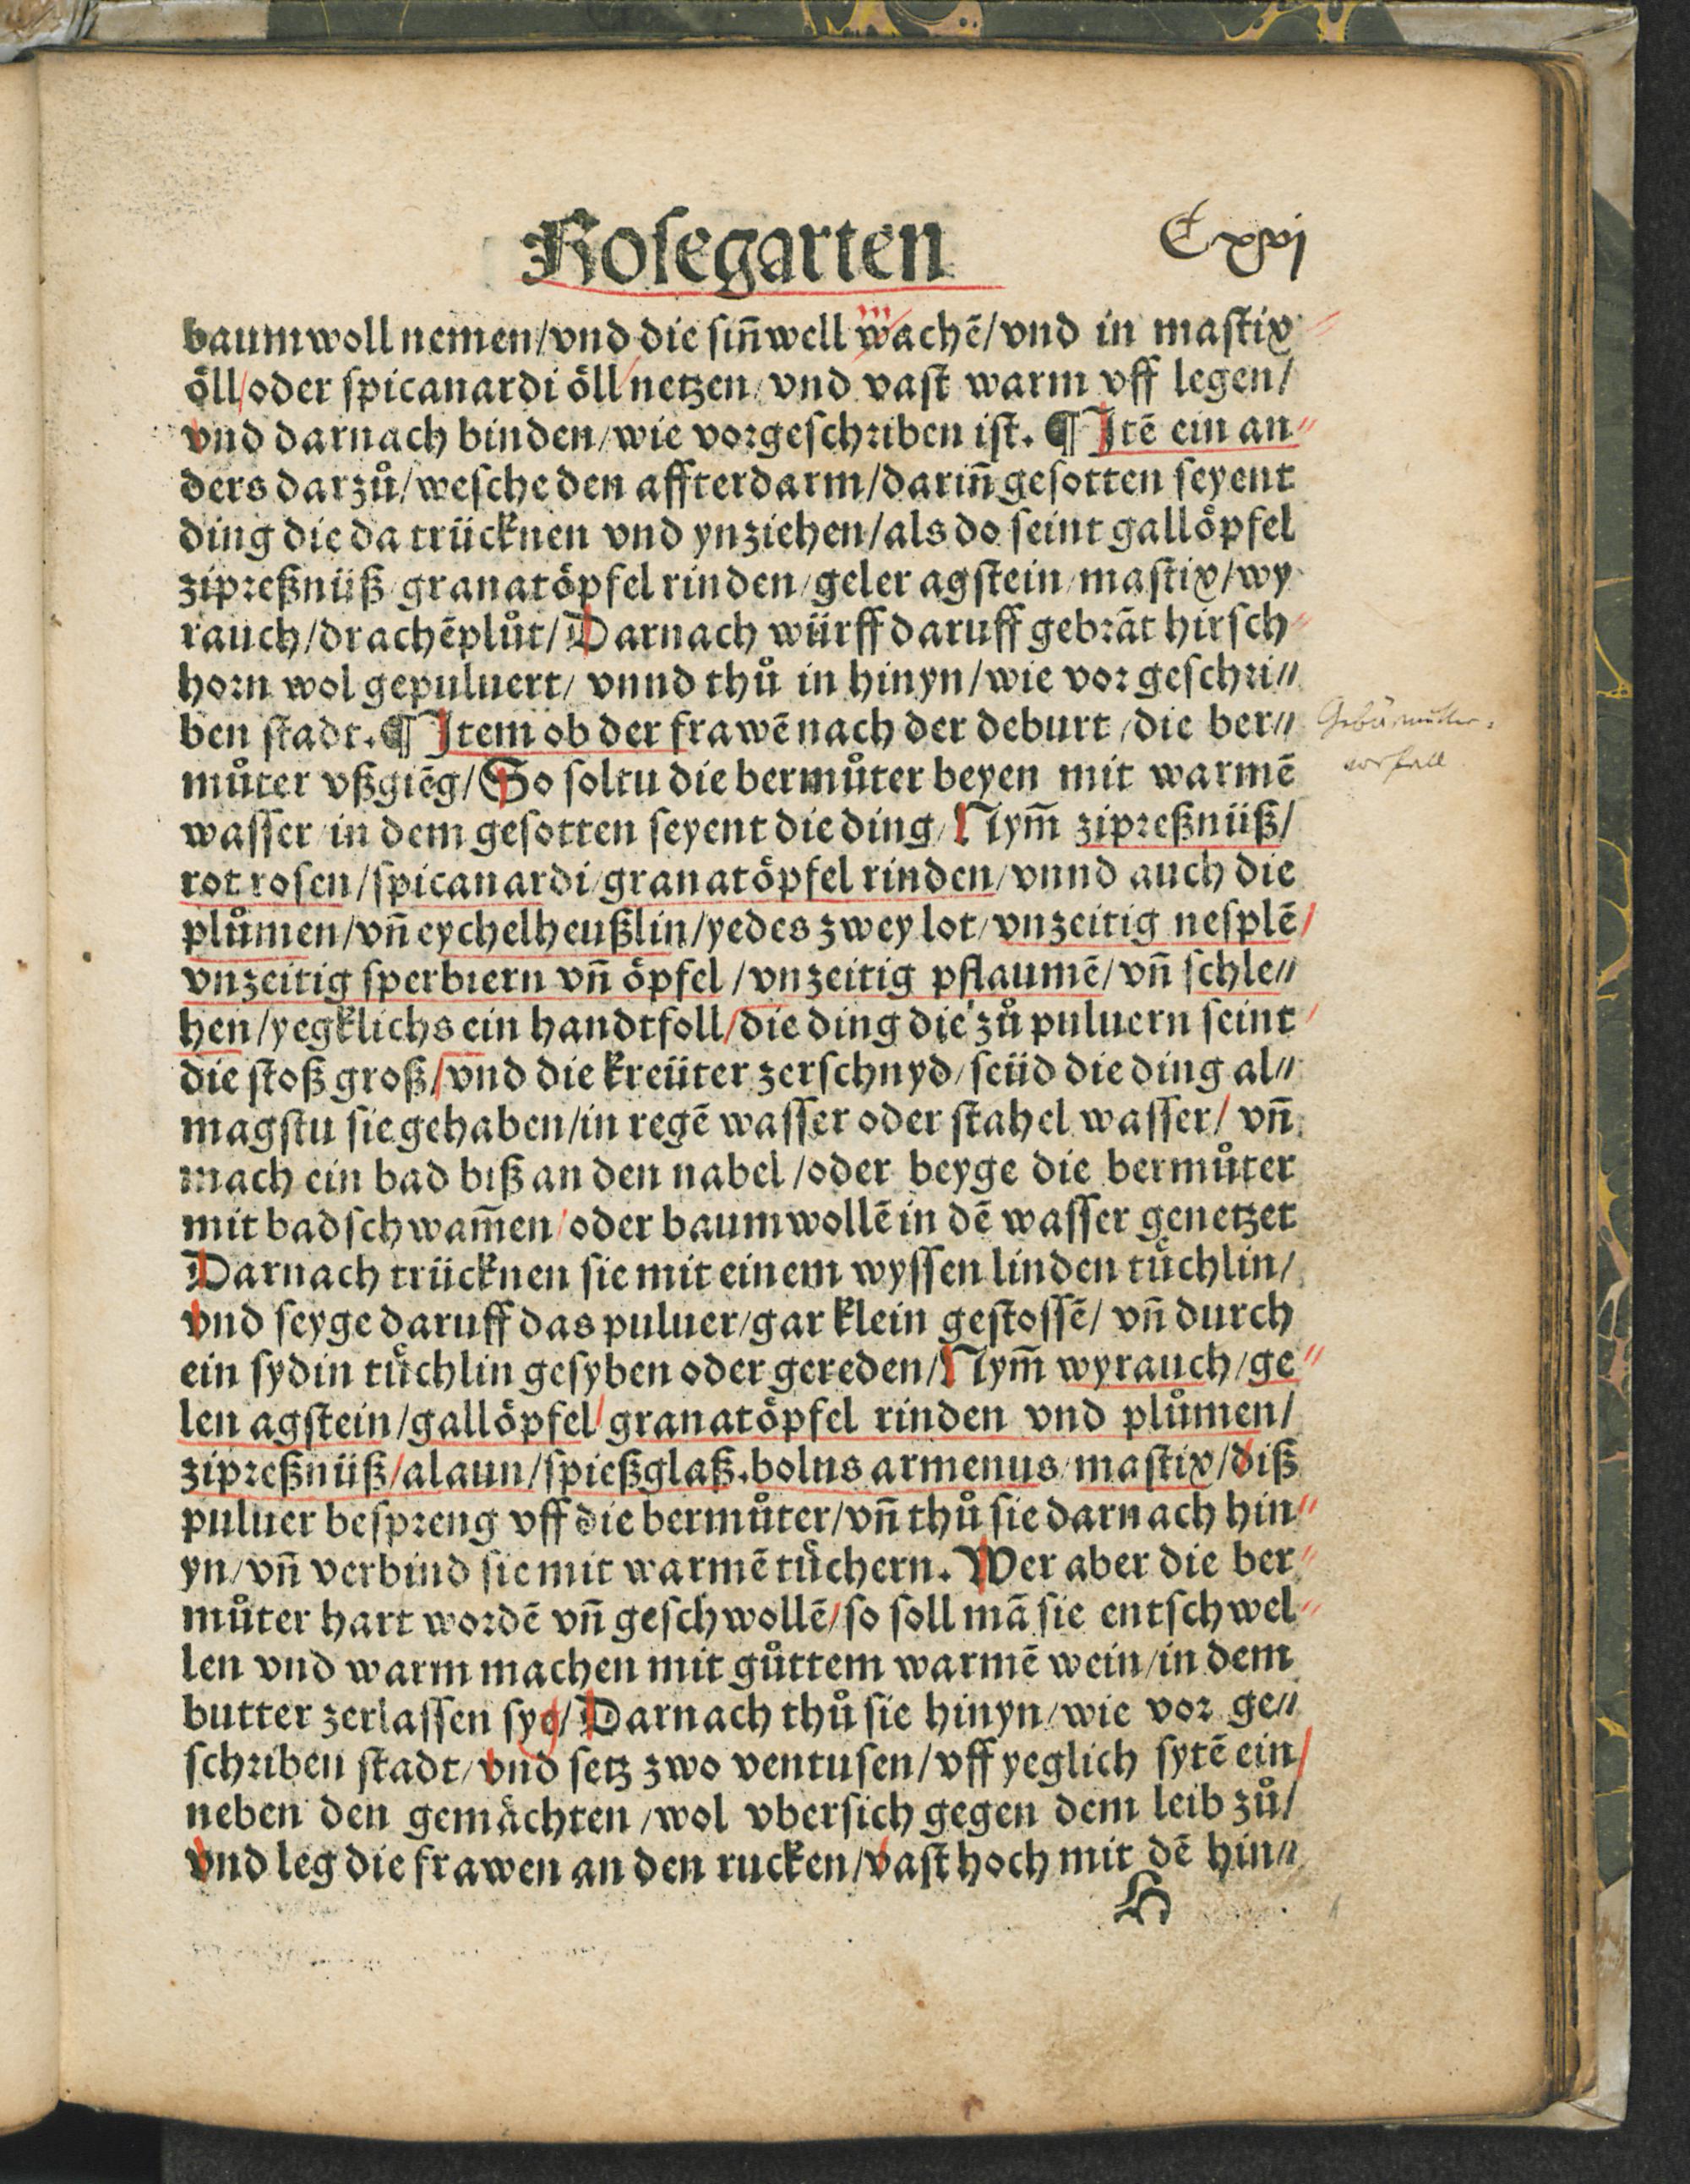 Rosegarten
Cxvj
baumwoll nemen/vnd die sin̄well wachē/vnd in mastix
öll/oder spicanardi öll/netzen/vnd vast warm vff legen/
vnd darnach binden/wie vorgeschriben ist. ¶ Itē ein an
ders darzů/wesche den affterdarm/darin̄ gesotten seyent
ding die da trücknen vnd ynziehen/als do seint gallöpfel
zipreßnüß/granatöpfel rinden/geler agstein/mastix/wy
rauch/drachēplůt/Darnach würff daruff gebrāt hirsch
horn wol gepuluert/vnnd thů in hinyn/wie vor geschri//
ben stadt. ¶ Item ob der frawē nach der deburt/die ber//
můter vßgiēg/So soltu die bermůter beyen mit warmē
wasser/in dem gesotten seyent die ding/Nym̄ zipreßnüß/
rot rosen/spicanardi/granatöpfel rinden/vnnd auch die
plůmen/vn̄ eychelheußlin/yedes zwey lot/vnzeitig nesplē/
vnzeitig sperbiern vn̄ öpfel/vnzeitig pflaumē/vn̄ schle//
hen/yegklichs ein handtfoll/die ding die zů puluern seint
die stoß groß/vnd die kreüter zerschnyd/seüd die ding al//
magstu sie gehaben/in regē wasser oder stahel wasser/vn̄
mach ein bad biß an den nabel/oder beyge die bermůter
mit badschwam̄en/oder baumwollē in dē wasser genetzet
Darnach trücknen sie mit einem wyssen linden tüchlin/
vnd seyge daruff das puluer/gar klein gestossē/vn̄ durch
ein sydin tüchlin gesyben oder gereden/Nym̄ wyrauch/ge
len agstein/gallöpfel/granatöpfel rinden vnd plůmen/
zipreßnüß/alaun/spießglaß.bolus armenus/mastix/diß
puluer bespreng vff die bermůter/vn̄ thů sie darnach hin
yn/vn̄ verbind sie mit warmē tüchern. Wer aber die ber
můter hart wordē vn̄ geschwollē/so soll mā sie entschwel
len vnd warm machen mit gůttem warmē wein/in dem
butter zerlassen syg/Darnach thů sie hinyn/wie vor ge//
schriben stadt/vnd setz zwo ventusen/vff yeglich sytē ein/
neben den gemächten/wol vbersich gegen dem leib zů/
vnd leg die frawen an den rucken/vast hoch mit dē hin//
H
Gebärmutter-
vorfall